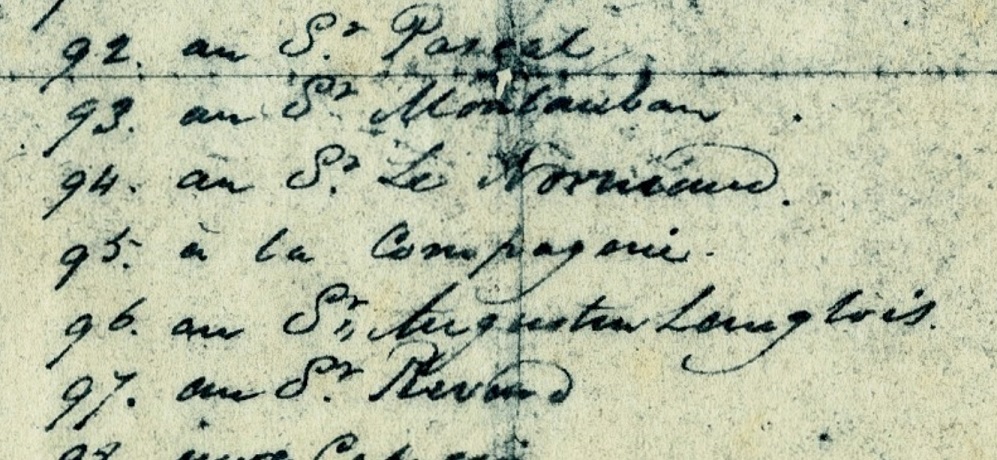 92. au Sr. Pascal
93. au Sr Montauban
94. au Sr. Le Normand.
95. à la Compagnie.
96. au Sr, Augustin Langlois.
97. au Sr.
98. aux